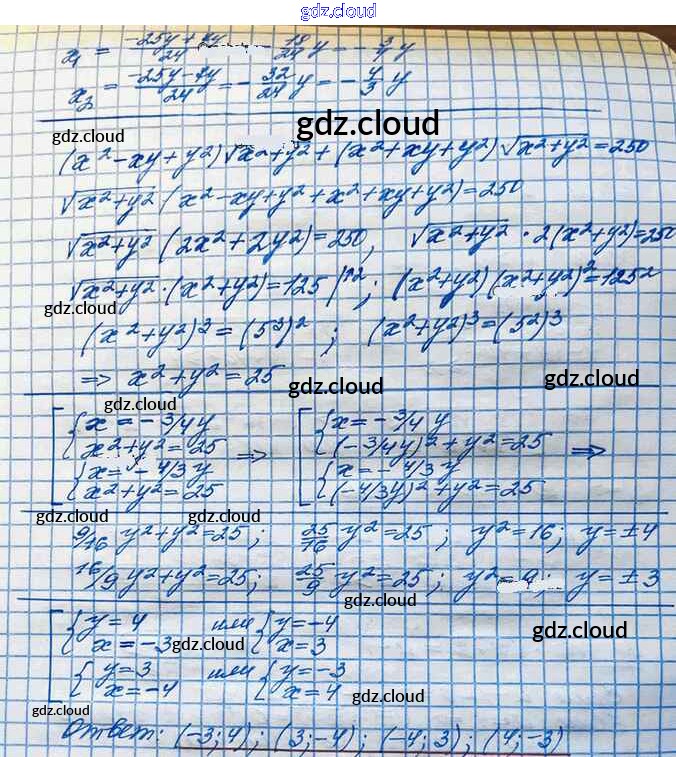 gdz.cloud
x₁ = (-25y + 7y)/24 = -18/24 y = -3/4 y
gdz.cloud
x₂ = (-25y - 7y)/24 = -32/24 y = -4/3 y
gdz.cloud
gdz.cloud
(x² - xy + y²)√x² + y² + (x² + xy + y²)√x² + y² = 250
√x² + y² (x² - xy + y² + x² + xy + y²) = 250
gdz.cloud
√x² + y² (2x² + 2y²) = 250, √x² + y² · 2(x² + y²) = 250
√x² + y² · (x² + y²) = 125 |↑2 ; (x² + y²)(x² + y²)² = 125²
gdz.cloud
(x² + y²)³ = (5³)² ; (x² + y²)³ = (5²)³
⇒ x² + y² = 25
gdz.cloud gdz.cloud
gdz.cloud
[ { x = -3/4 y [ { x = -3/4 y
x² + y² = 25 ⇒ (-3/4 y)² + y² = 25 ⇒
{ x = -4/3 y { x = -4/3 y
x² + y² = 25 (-4/3 y)² + y² = 25
gdz.cloud gdz.cloud
9/16 y² + y² = 25 ; 25/16 y² = 25 ; y² = 16 ; y = ±4
16/9 y² + y² = 25 ; 25/9 y² = 25 ; y² = 9 ; y = ±3
gdz.cloud
[ { y = 4 или { y = -4
x = -3 x = 3
gdz.cloud gdz.cloud
{ y = 3 или { y = -3
x = -4 x = 4
gdz.cloud gdz.cloud
Ответ: (-3; 4) ; (3; -4) ; (-4; 3) ; (4; -3)